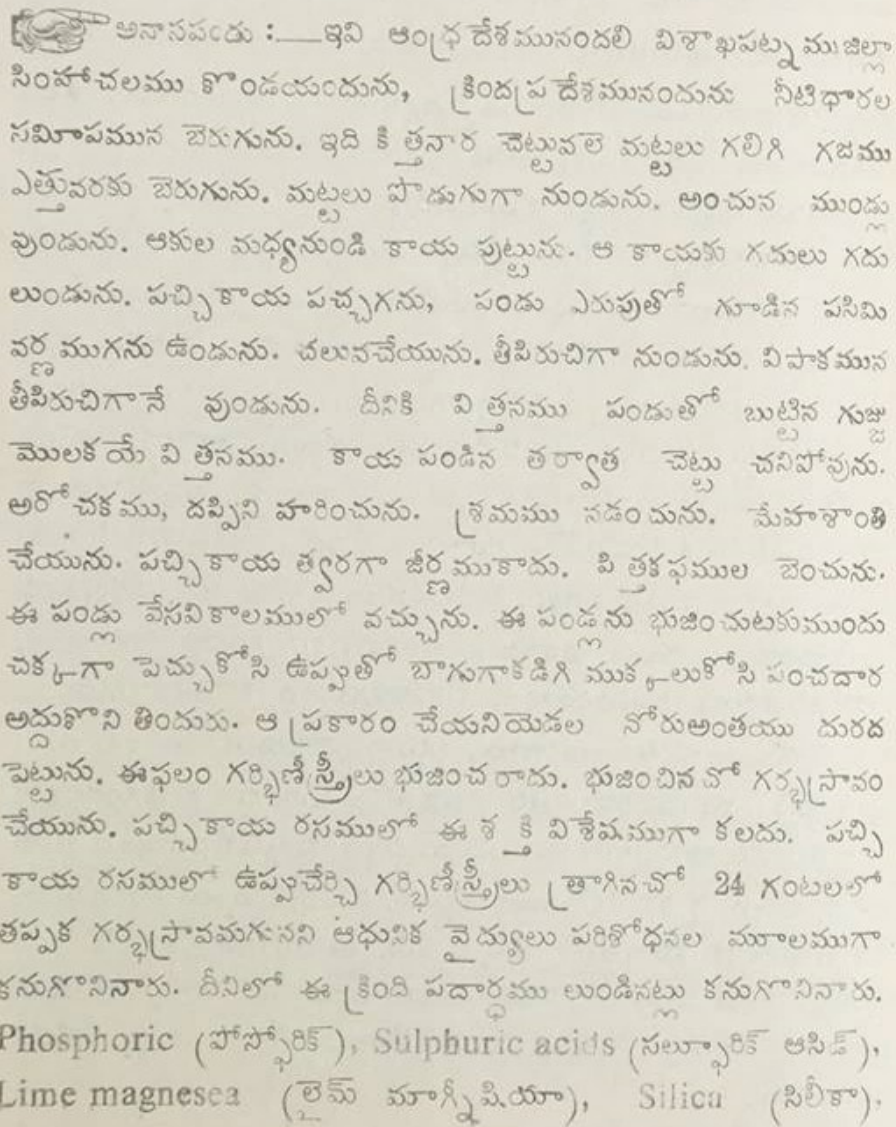 అనాసపండు :—ఇవి ఆంధ్ర దేశమునందలి విశాఖపట్నము జిల్లా
సింహాచలము కొండయందును, క్రిందప్రదేశమునందును నీటిధారల
సమీపమున బెరుగును. ఇది కిత్తనార చెట్టువలె మట్టలు గలిగి గజము
ఎత్తువరకు బెరుగును. మట్టలు పొడుగుగా నుండును. అంచున ముండ్లు
వుండును. ఆకుల మధ్యనుండి కాయ పుట్టును. ఆ కాయకు గదులు గదు
లుండును. పచ్చికాయ పచ్చగను, పండు ఎరుపుతో గూడిన పసిమి
వర్ణముగను ఉండును. చలువచేయును. తీపిరుచిగా నుండును. విపాకమున
తీపిరుచిగానే వుండును. దీనికి విత్తనము పండుతో బుట్టిన గుజ్జు
మొలకయే విత్తనము. కాయ పండిన తర్వాత చెట్టు చనిపోవును.
అరోచకము, దప్పిని హరించును. శ్రమము నడంచును. మేహశాంతి
చేయును. పచ్చికాయ త్వరగా జీర్ణముకాదు. పిత్తకఫముల బెంచును.
ఈ పండ్లు వేసవికాలములో వచ్చును. ఈ పండ్లను భుజించుటకుముందు
చక్కగా పెచ్చుకోసి ఉప్పుతో బాగుగాకడిగి ముక్కలుకోసి పంచదార
అద్దుకొని తిందురు. ఆ ప్రకారం చేయనియెడల నోరుఅంతయు దురద
పెట్టును. ఈఫలం గర్భిణీ స్త్రీలు భుజించరాదు. భుజించినచో గర్భస్రావం
చేయును. పచ్చికాయ రసములో ఈ శక్తి విశేషముగా కలదు. పచ్చి
కాయ రసములో ఉప్పుచేర్చి గర్భిణీస్త్రీలు త్రాగినచో 24 గంటలలో
తప్పక గర్భస్రావమగునని ఆధునిక వైద్యులు పరిశోధనల మూలముగా
కనుగొనినారు. దీనిలో ఈ క్రింది పదార్ధము లుండినట్లు కనుగొనినారు.
Phosphoric (పోస్ఫోరిక్), Sulphuric acids (సల్ఫ్యూరిక్ ఆసిడ్),
Lime magnesea (లైమ్ మాగ్నీషియా), Silica (సిలీకా).